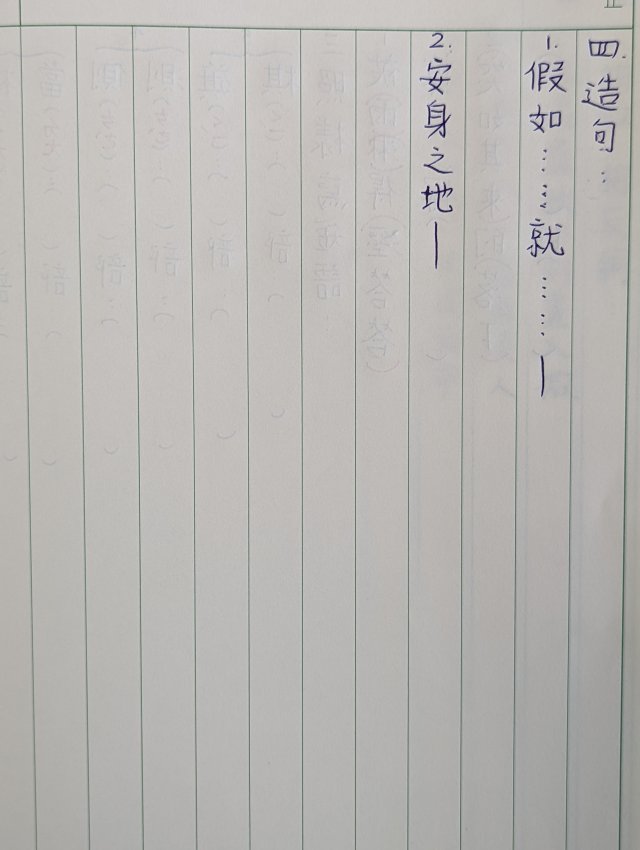 四.造句：
1.假如……就……—
2.安身之地—